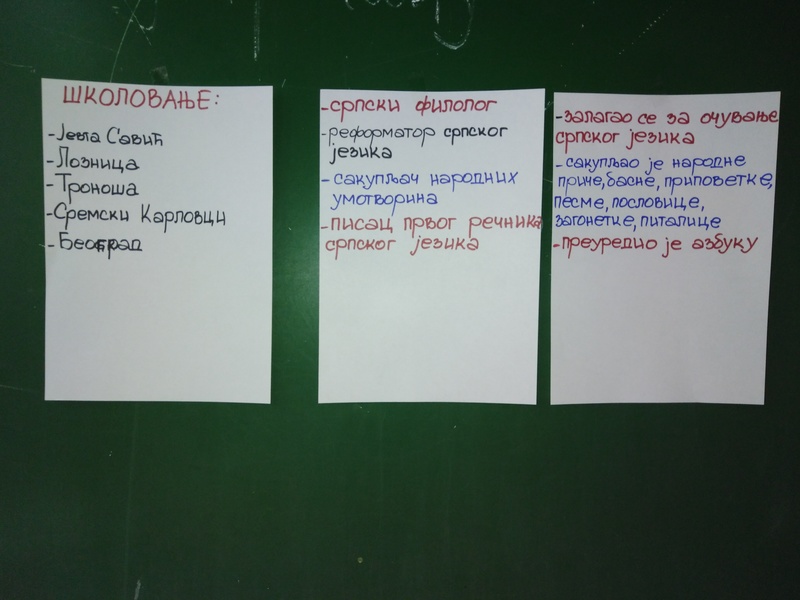 ШКОЛОВАЊЕ:
-Јевта Савић
-Лозница
-Троноша
-Сремски Карловци
-Београд
-српски филолог
-реформатор српског
језика
-сакупљач народних
умотворина
-писац првог речника
српског језика
-залагао се за очување
српског језика
-сакупљао је народне
приче, басне, приповетке,
песме, пословице,
загонетке, питалице
-преуредио је азбуку